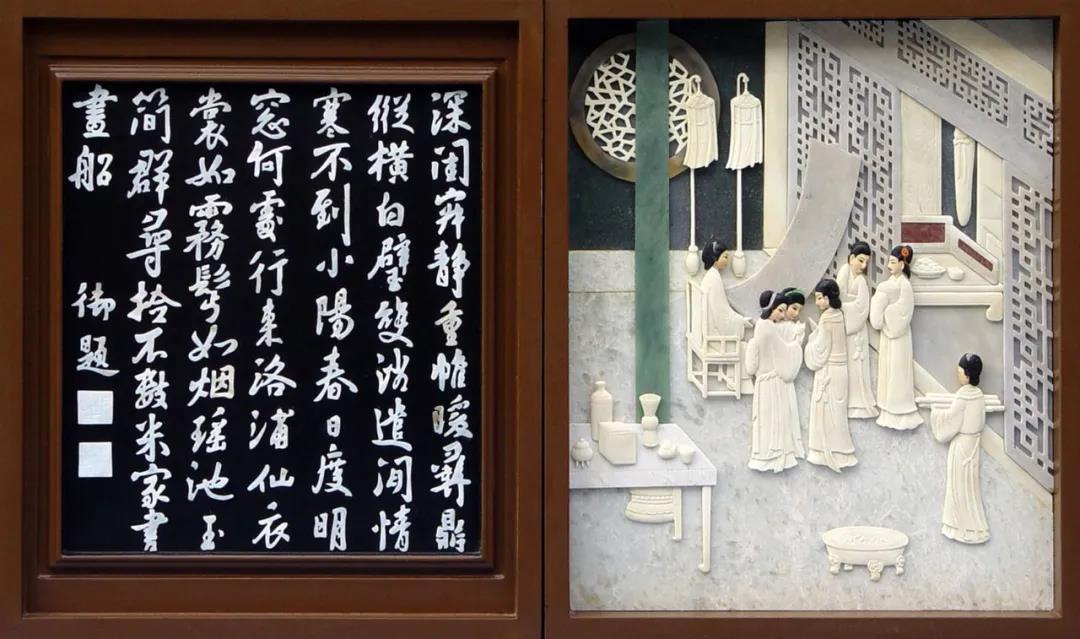 深閨寂靜重帷暖彝鼎
縱橫白璧雙消遣閒情
寒不到小陽春日度明
窓何處行來洛浦仙衣
裳如霧髩如烟瑤池玉
簡群尋拾不數米家書
畫船 御題